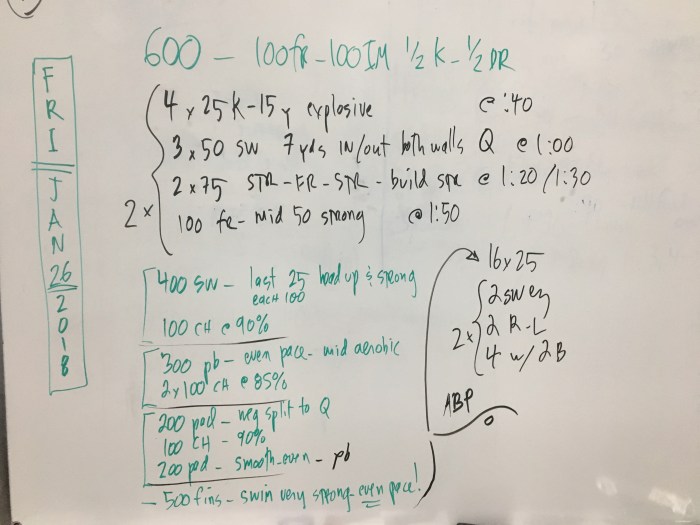 FRI JAN 26 2018
600 - 100fr - 100 IM 1/2 K - 1/2 DR
4 x 25 K - 15y explosive @ :40
3 x 50 SW 7 yds IN/out both walls Q @ 1:00
2 x 75 STR - FR - STR - build spe @ 1:20/1:30
2x
100 fr - mid 50 strong @ 1:50
400 SW - last 25 head up & strong
each 100
100 CH @ 90%
300 pb - even pace - mid aerobic
2 x 100 CH @ 85%
200 pad - neg split to Q
100 CH - 90%
200 pad - smooth-even - pb
- 500 fins - swim very strong - even pace!
16 x 25
2 sw ez
2x 2 R-L
4 w/ 2B
ABP